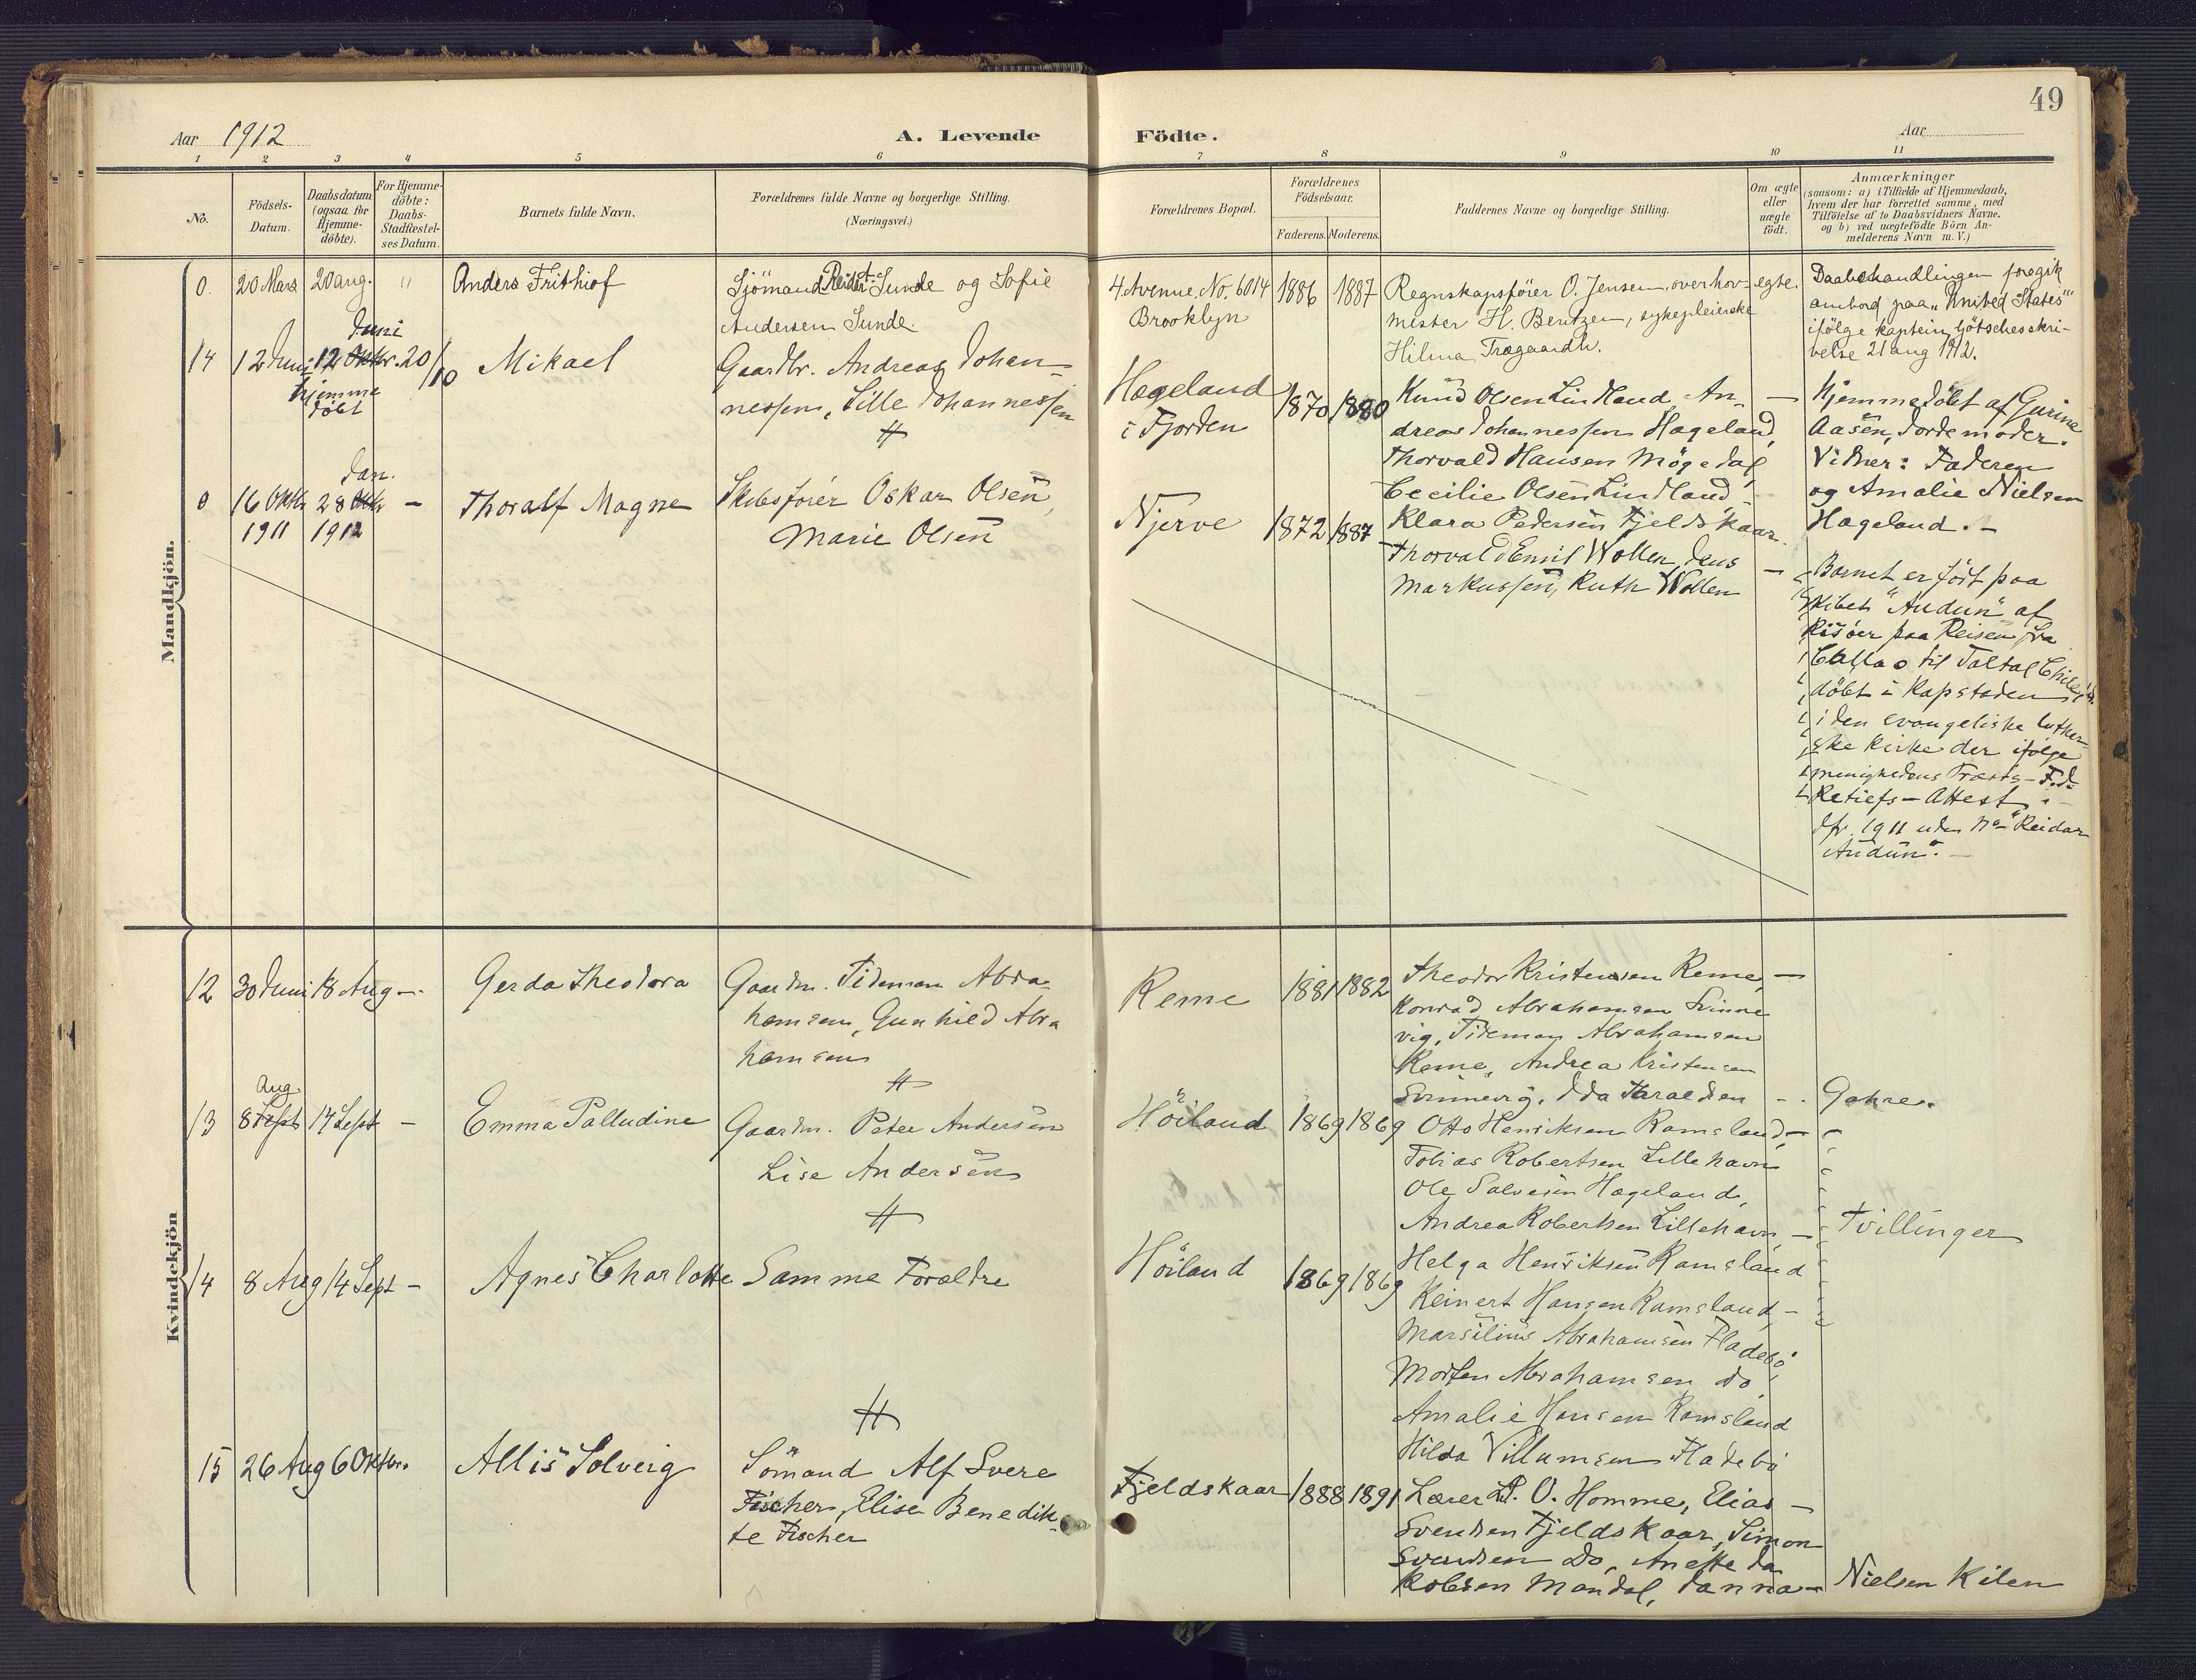 49
Aar 1912
A. Levende Födte.
Aar
1 2 3 4 5 6 7 8 9 10 11
No.
Födsels-
Datum.
Daabsdatum
(ogsaa for
Hjemme-
döbte).
For Hjemme-
döbte:
Daabs-
Stadfæstel-
ses Datum.
Barnets fulde Navn.
Forældrenes fulde Navne og borgerlige Stilling.
(Næringsvei.)
Forældrenes Bopæl.
Forældrenes
Födselsaar.
Faderens. Moderens.
Faddernes Navne og borgerlige Stilling.
Om ægte
eller
uægte
födt.
Anmærkninger
(saasom: a) i Tilfælde af Hjemmedaab,
hvem der har forrettet samme, med
Tilföielse af to Daabsvidners Navne.
og b) ved uægtefödte Börn An-
melderens Navn m. V.)
Mandkjön.
0 20 Mars 20 aug. " Anders Frithiof
Sjömand Reidar Sunde og Sofie
Andersen Sunde.
4 Avenue, No. 6014
Brooklyn
1886 1887
Regnskapsförer O. Jensen, overhov-
mester H. Berntzen, sykepleierske
Hilma Trægaardh.
egte.
Daabshandlingen foregik
ombord paa "United States"
ifölge kaptein Götsches skri-
velse 21 aug 1912.
14 12 Juni 12 Oktbr. 20/10
Juni
hjemme
döbt
Mikael
Gaardbr. Andreas Johan-
nessen, Sille Johannessen
Hageland
i Fjorden
1870 1880
Knud Olsen Lindland, An-
dreas Johannessen Hageland,
Thorvald Hansen Mögedal,
Cecilie Olsen Lindland
Klara Pedersen Fjeldskaar.
Hjemmedöbt af Gurine
Aasen, Jordemoder.
Vidner: Faderen
og Amalie Nielsen
Hageland. -
0 16 Oktb 28 Oktb - Thoralf Magne
Jan.
1911 1912
Skibsförer Oskar Olsen,
Marie Olsen
Njerve
1872 1887
Thorvald Emil Wollen, Jens
Markussen, Ruth Wollen
Barnet er födt paa
skibet "Audun" af
Risöer paa Reisen fra
Callao til Taltal Chile,
döbt i Kapstaden
i den evangeliske luther-
ske Kirke der ifölge
menighedens Præsts-
Retiefs - Attest
Jfr. 1911 uden No "Reidar
Audun". -
Kvindekjön
12 30 Juni 18 Aug -. Gerda Theodora
Gaardm. Tideman Abra
hamsen, Gunhild Abra
hamsen
Reme
1881 1882
Theodor Kristensen Reme, -
Konrad Abrahamsen Svinne
vig, Tideman Abrahamsen
Reme, Andrea Kristensen
Svinnevig, Ida Haraldsen - . Gahre.
13 8 Sept 14 Sept - Emma Palludine
Aug.
Gaardm. Peter Andersen
Lise Andersen
Höiland
1869 1869
Otto Henriksen Ramsland, -
Tobias Robertsen Lillehavn
Ole Salvesen Hageland,
Andrea Robertsen Lillehavn -
Helga Henriksen Ramsland
Tvillinger
14 8 Aug 14 Sept - Agnes Charlotte Samme Forældre
Höiland
1869 1869
Reinert Hansen Ramsland, -
Marsilius Abrahamsen Fladebö
Morten Abrahamsen do,
Amalie Hansen Ramsland
Hilda Villumsen Fladebö
15 26 Aug 6 Oktbr. Allis Solveig
Sömand Alf Svere
Fischer, Elise Benedik-
te Fischer
Fjeldskaar
1888 1891
Lærer P. O. Homme, Elias -
Svendsen Fjeldskaar, Simon
Svendsen do, Anette Ja
kobsen Mandal, Janna - Nielsen Kilen